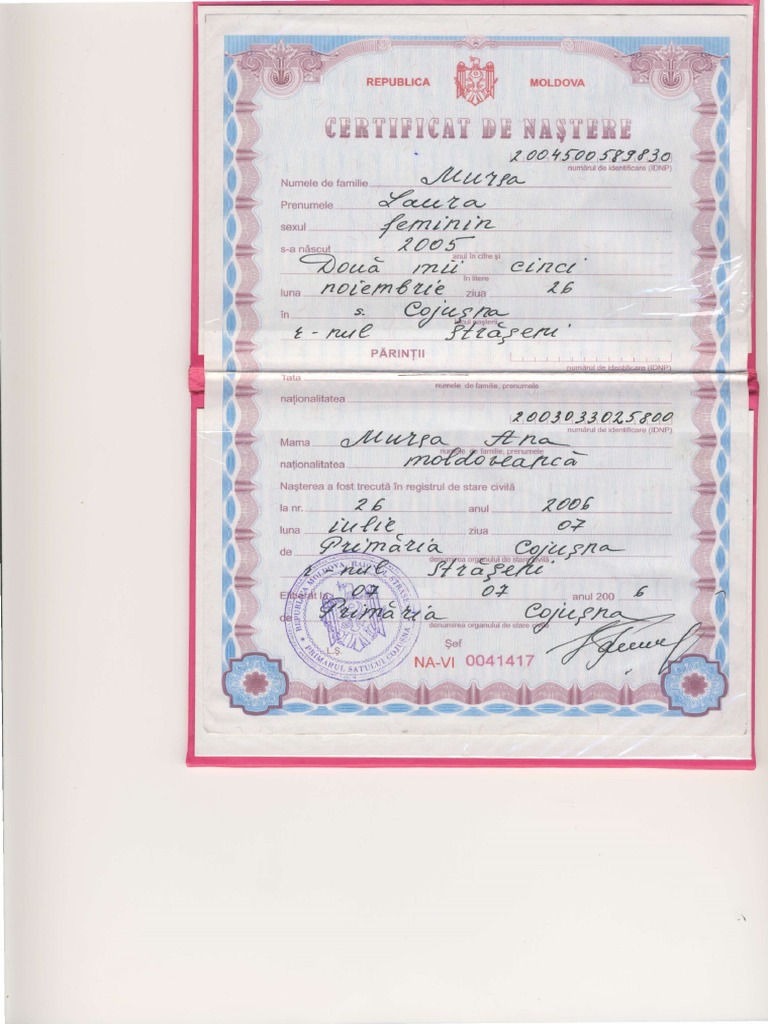 REPUBLICA MOLDOVA
CERTIFICAT DE NAȘTERE
2004500589830
numărul de identificare (IDNP)
Numele de familie Mursa
Prenumele Laura
sexul feminin
s-a născut 2005
anul în cifre și
Două mii cinci
în litere
luna noiembrie ziua 26
în s. Cojușna
locul nașterii
r-nul Strășeni
PĂRINȚII
numărul de identificare (IDNP)
Tata
numele de familie, prenumele
naționalitatea
2003033025800
numărul de identificare (IDNP)
Mama Mursa Ana
numele de familie, prenumele
naționalitatea moldoveancă
Nașterea a fost trecută în registrul de stare civilă
la nr. 26 anul 2006
luna iulie ziua 07
de Primăria Cojușna
denumirea organului de stare civilă
r-nul Strășeni
Eliberat la 07 07 anul 200 6
de Primăria Cojușna
denumirea organului de stare civilă
Șef
L.Ș.
NA-VI 0041417
REPUBLICA MOLDOVA RAIONUL STRĂȘENI
PRIMARUL SATULUI COJUȘNA